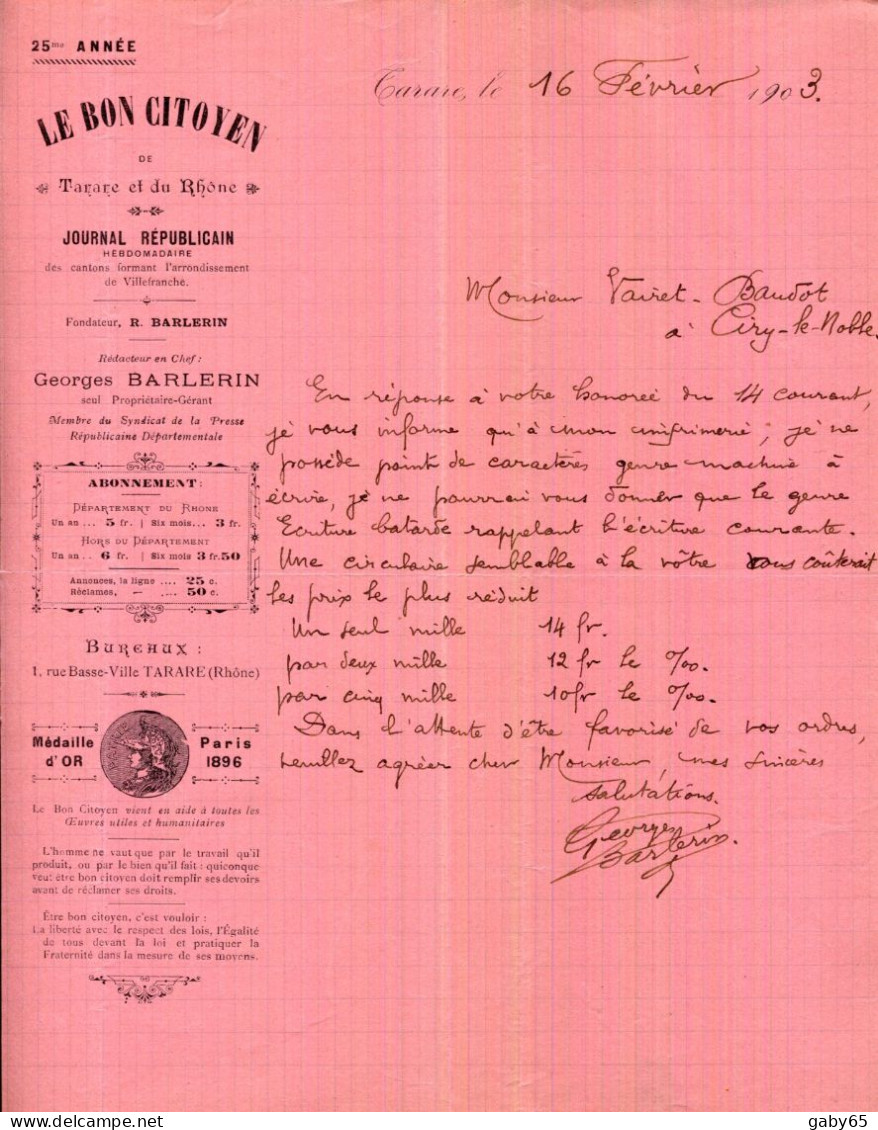 25me ANNÉE
LE BON CITOYEN
DE
Tarare et du Rhône
JOURNAL RÉPUBLICAIN
HEBDOMADAIRE
des cantons formant l'arrondissement
de Villefranche.
Fondateur, R. BARLERIN
Rédacteur en Chef :
Georges BARLERIN
seul Propriétaire-Gérant
Membre du Syndicat de la Presse
Républicaine Départementale
ABONNEMENT :
DÉPARTEMENT DU RHONE
Un an ... 5 fr. | Six mois... 3 fr.
HORS DU DÉPARTEMENT
Un an .. 6 fr. | Six mois 3 fr. 50
Annonces, la ligne .... 25 c.
Réclames, — .... 50 c.
BUREAUX :
1, rue Basse-Ville TARARE (Rhône)
Médaille d'OR
Paris 1896
Le Bon Citoyen vient en aide à toutes les
Œuvres utiles et humanitaires
L'homme ne vaut que par le travail qu'il
produit, ou par le bien qu'il fait : quiconque
veut être bon citoyen doit remplir ses devoirs
avant de réclamer ses droits.
Être bon citoyen, c'est vouloir :
La liberté avec le respect des lois, l'Égalité
de tous devant la loi et pratiquer la
Fraternité dans la mesure de ses moyens.
Tarare, le 16 Février 1903.
Monsieur Vairet-Baudot
à Ciry-le-Noble.
En réponse à votre honorée du 14 courant,
je vous informe qu'à mon imprimerie, je ne
possède point de caractères genre machine à
écrire, je ne pourrai vous donner que le genre
Ecriture batarde rappelant l'écriture courante.
Une circulaire semblable à la vôtre vous coûterait
les prix le plus réduit
Un seul mille 14 fr.
par deux mille 12 fr le %00.
par cinq mille 10 fr le %00.
Dans l'attente d'être favorisé de vos ordres,
veuillez agréer cher Monsieur, mes sincères
salutations.
Georges Barlerin.
gaby65